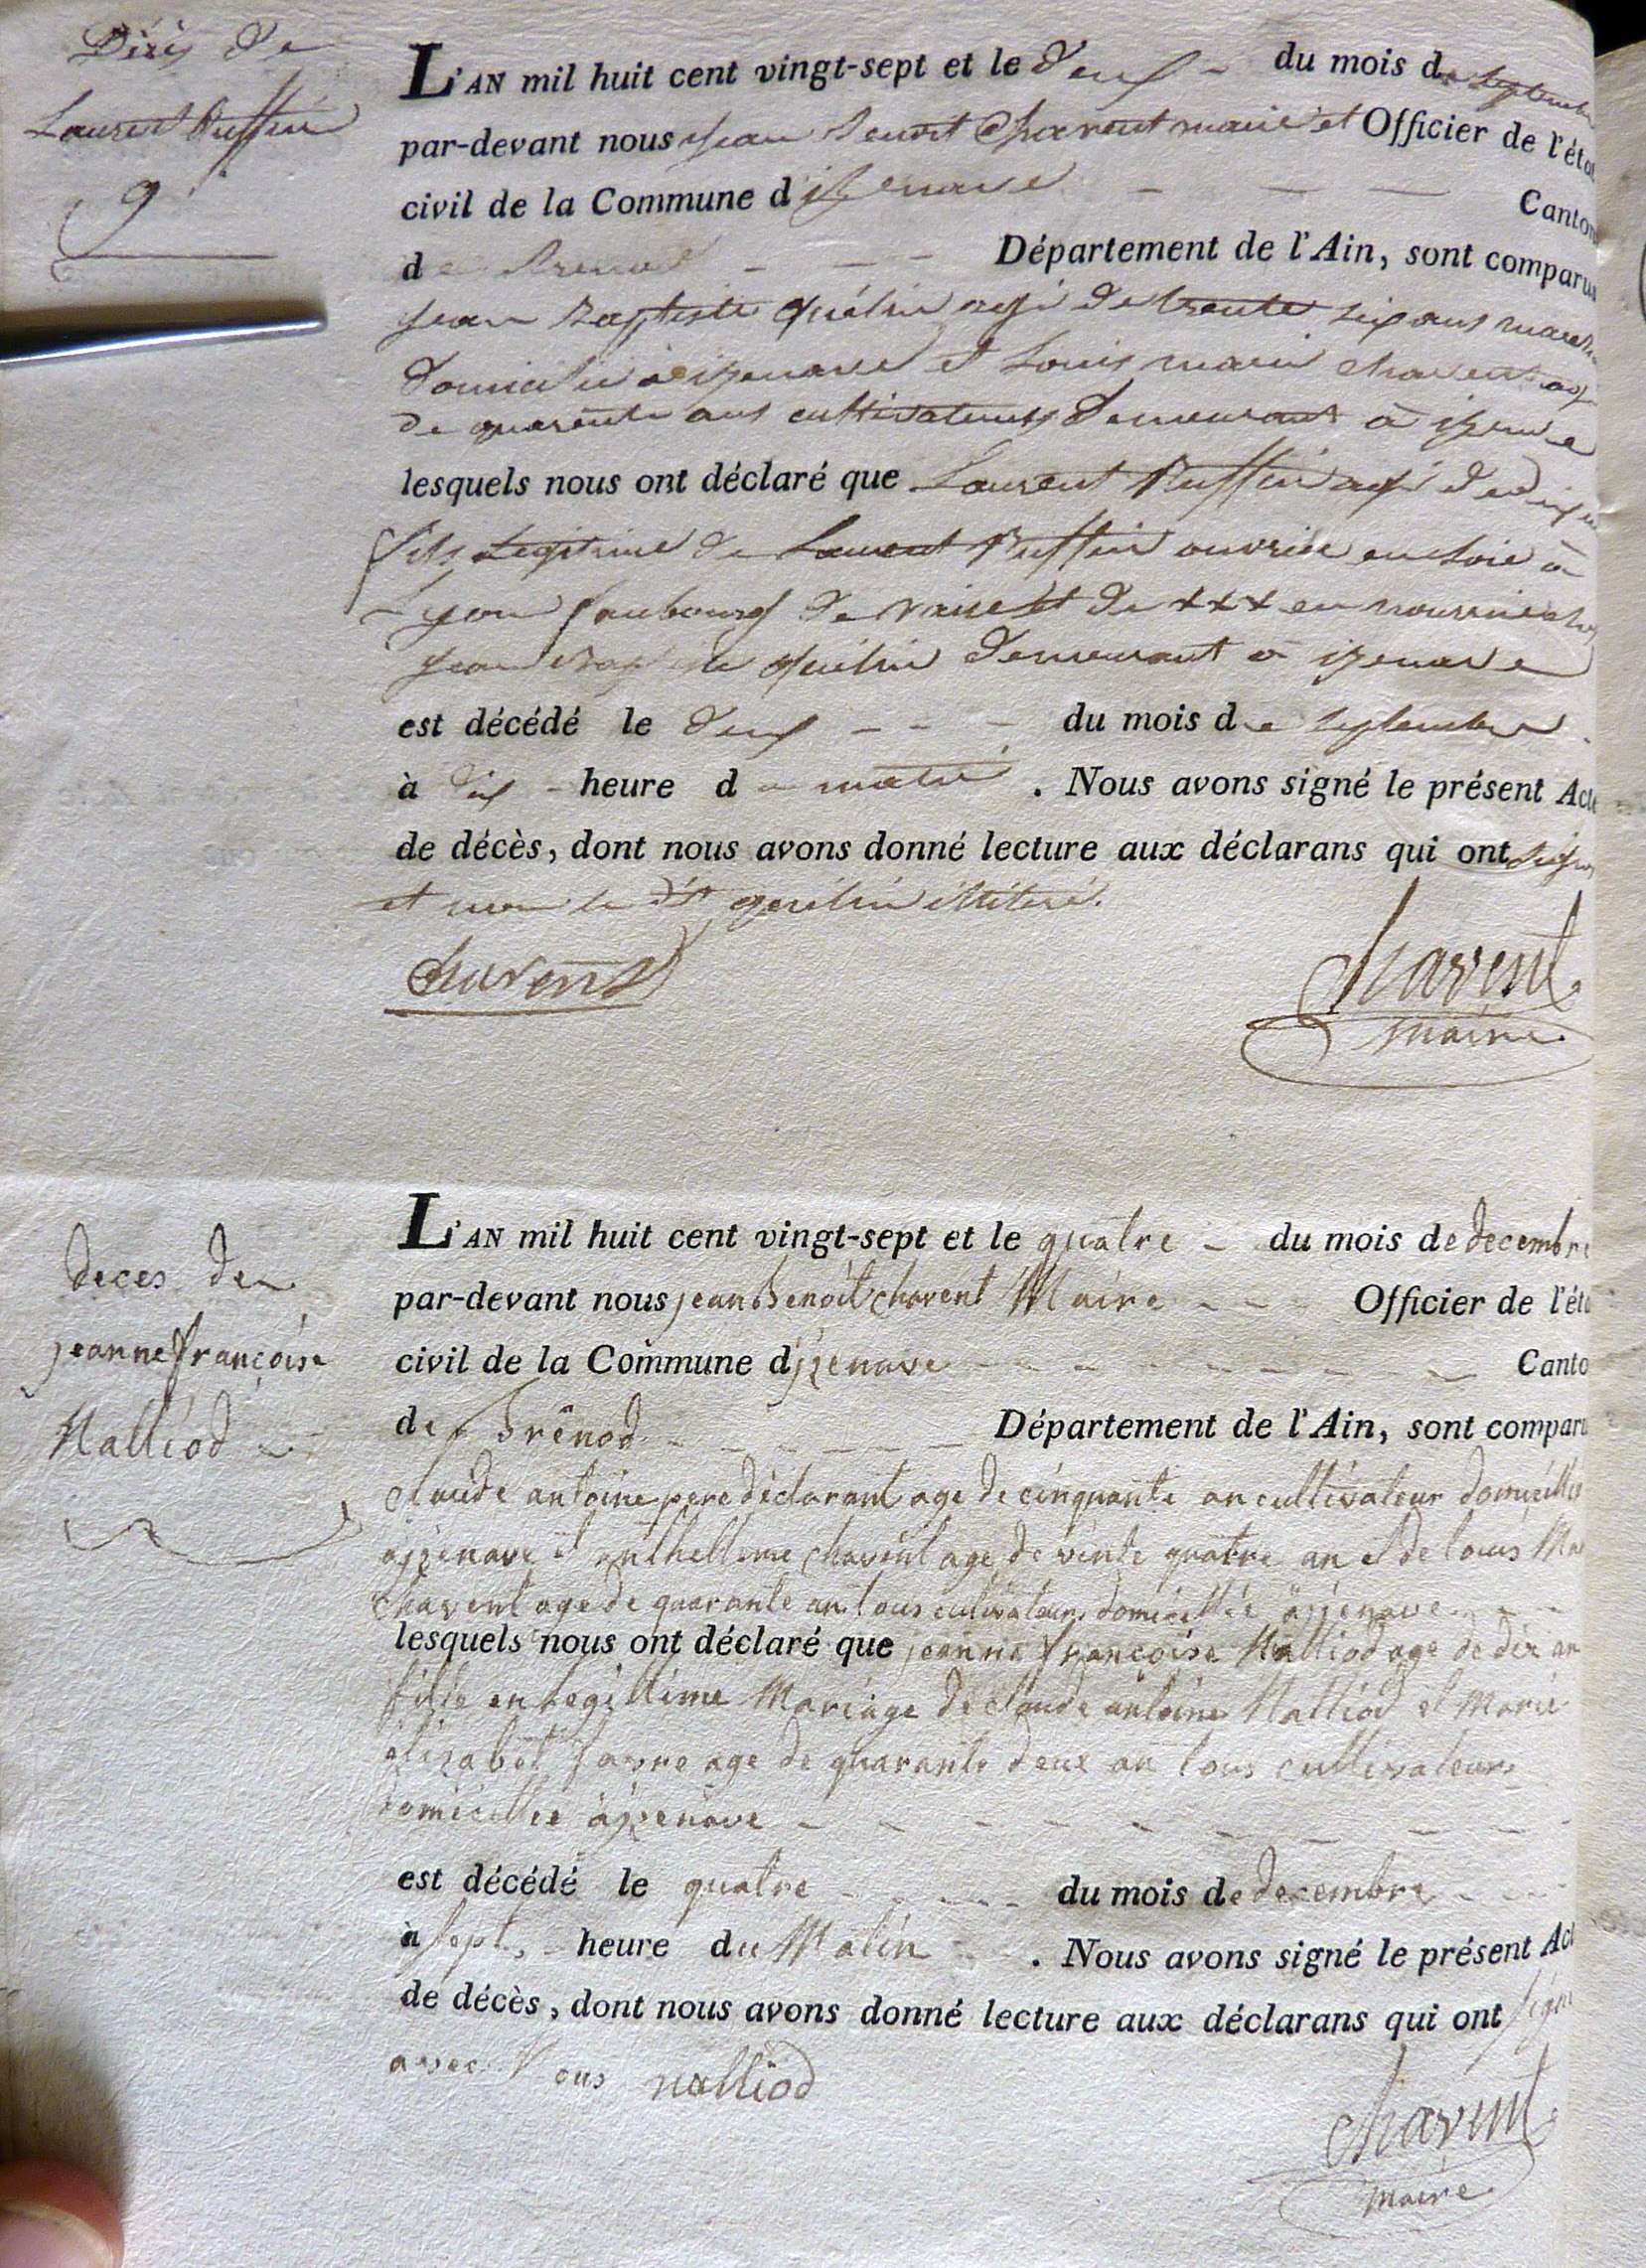 Décès de
Laurent Ruffin
9
L'AN mil huit cent vingt-sept et le deux - du mois de septembre
par-devant nous jean benoit Chavent maire et Officier de l'éta
civil de la Commune d'izenave - - - Canton
de Brenod - - - Département de l'Ain, sont comparus
jean Baptiste quélin agé de trente six ans
domicilié a izenave et Louis marie chavent agé
de quarente ans cultivateurs demeurant à izenave
lesquels nous ont déclaré que Laurent Ruffin agé de
fils Legitime de Laurent Ruffin ouvrier en soie à
Lyon faubourg de vaise et de xxx en nourrice chez
jean Baptiste quélin demeurant a izenave
est décédé le deux - - - du mois de septembre
à dix - heure du matin . Nous avons signé le présent Acte
de décès, dont nous avons donné lecture aux déclarans qui ont signé
et non le dt quélin illitéré.
Chavent
Chavent
maire
deces de
jeanne françoise
Nalliod
L'AN mil huit cent vingt-sept et le quatre - du mois de decembre
par-devant nous jean Benoit chavent Maire - - Officier de l'éta
civil de la Commune d'jzenave - - - - - - - Canto
de Brênod - - - - - Département de l'Ain, sont comparu
claude antoine pere déclarant age de cinquante an cultivateur domicillié
ajzenave et anthellme chavent age de vinte quatre an et de louis Ma
chavent age de quarante an tous cultivateurs domicillié àjzenave - -
lesquels nous ont déclaré que jeanne françoise Nalliod age de dix an
fille en legittime Mariage de claude antoine Nalliod et Marie
elizabet favre age de quarante deux an tous cultivateurs
domicillie àjzenave - - - - - - - - -
est décédé le quatre - - - - du mois de decembre - -
à sept - heure du Matin . Nous avons signé le présent Act
de décès, dont nous avons donné lecture aux déclarans qui ont signé
avec Nous nalliod
Chavent
maire